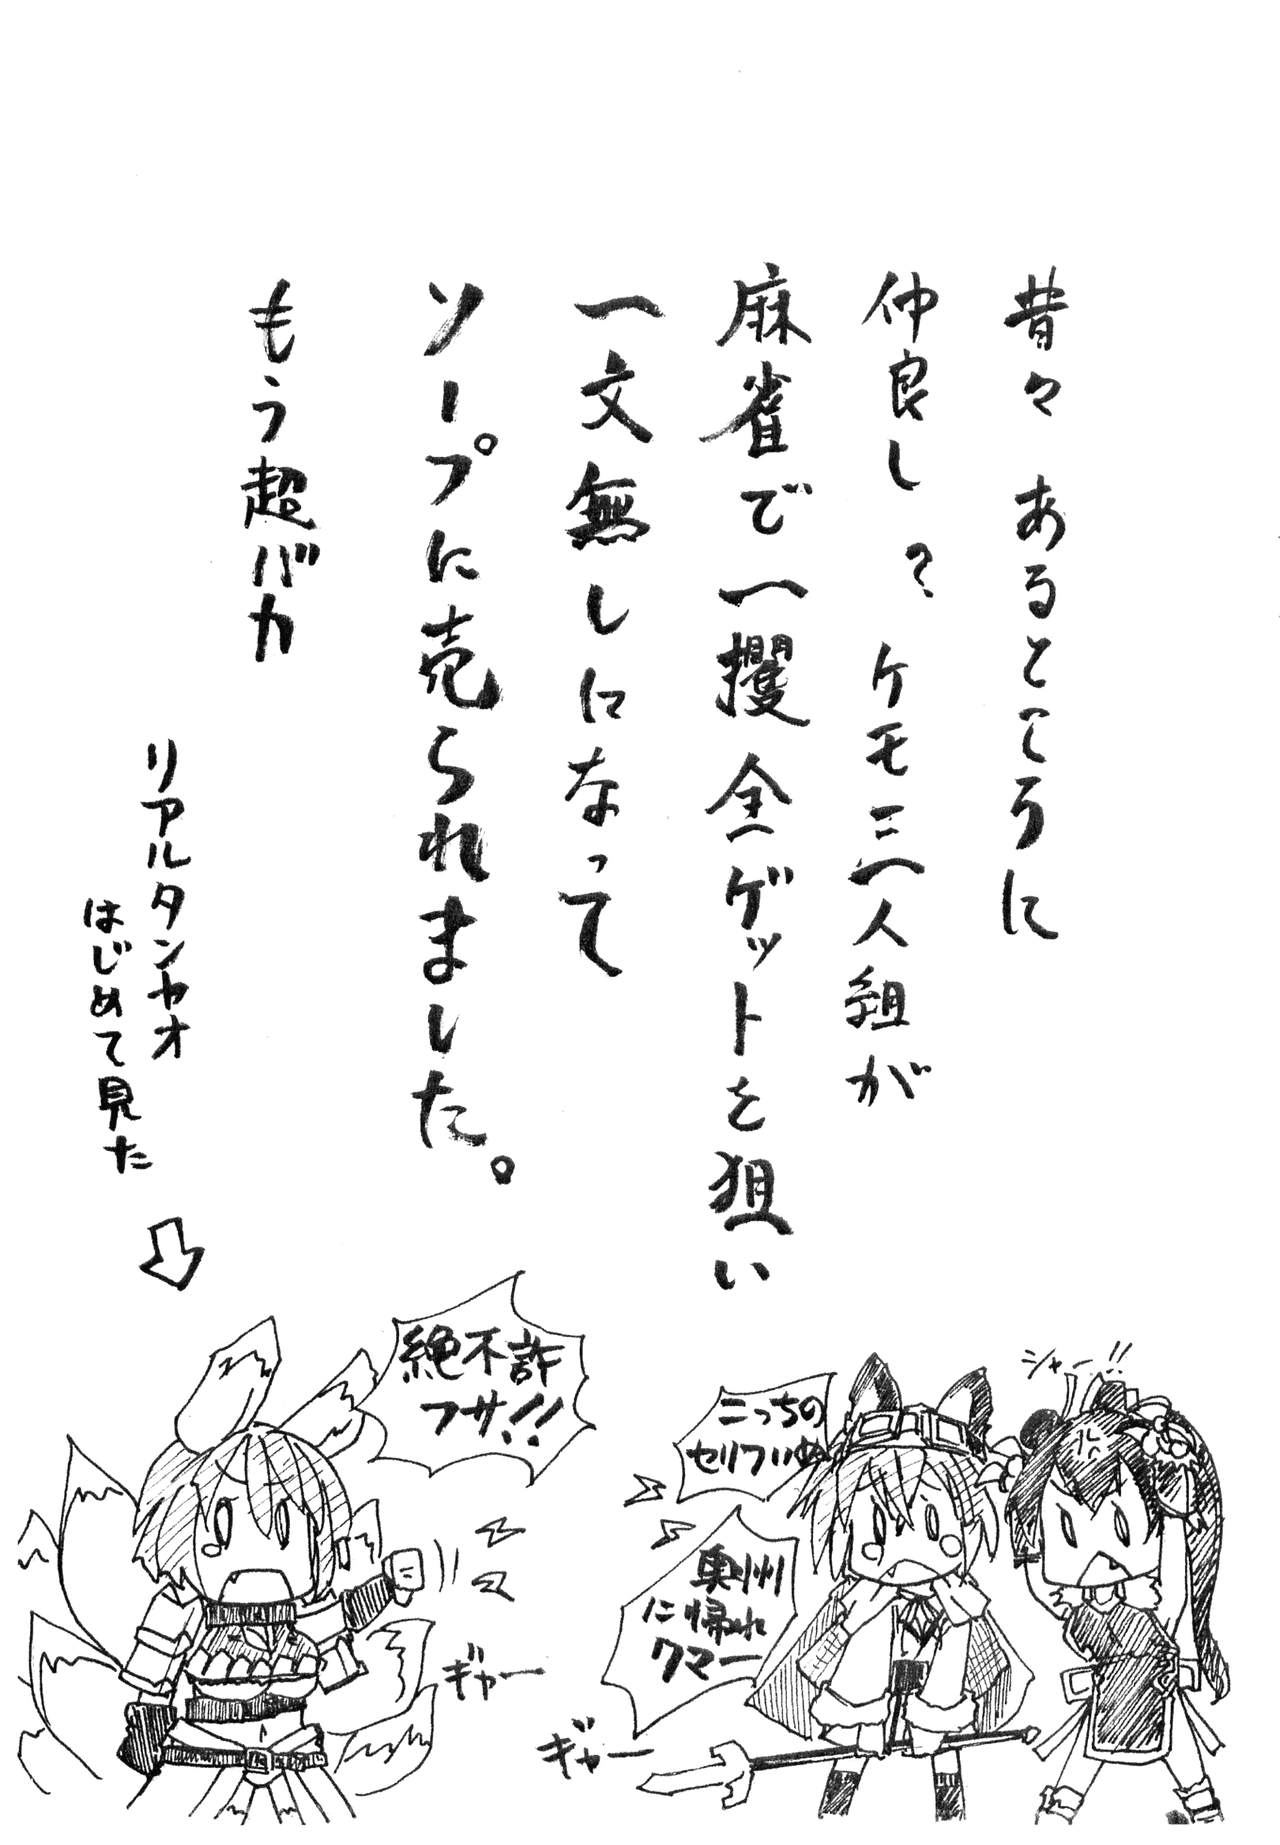 昔々 あるところに
仲良し？ケモ三人組が
麻雀で一攫千金ゲットを狙い
一文無しになって
ソープに売られました。
もう超バカ
リアルタンヤオ
はじめて見た
シャー!!
こっちの
セリフいぬ
奥州
に帰れ
クマー
ギャー
絶不許
フサ!!
ギャー